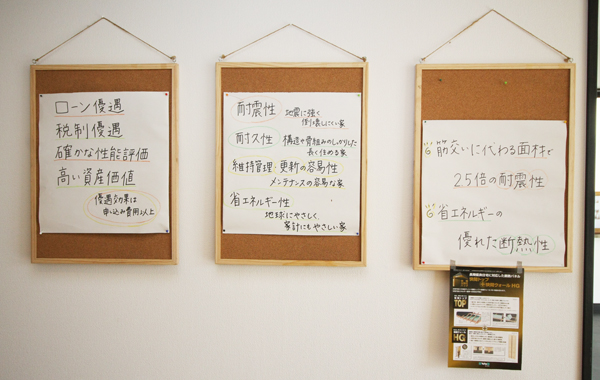 ローン優遇
税制優遇
確かな性能評価
高い資産価値
優遇効果は
申し込み費用以上
耐震性
地震に強く
倒壊しにくい家
耐久性
構造や骨組みのしっかりした
長く住める家
維持管理・更新の容易性
メンテナンスの容易な家
省エネルギー性
地球にやさしく
家計にもやさしい家
筋交いに代わる面材で
2.5倍の耐震性
省エネルギーの
優れた断熱性
TOP
HG